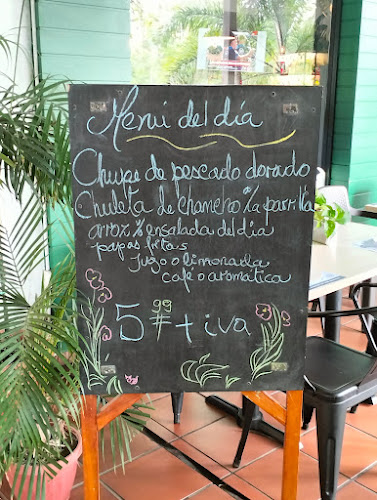 Menú del día
Chupe de pescado dorado
Chuleta de chancho a/la parrilla
arroz % ensalada del dia
papas fritas
jugo o limonada
café o aromática
5.99 + iva